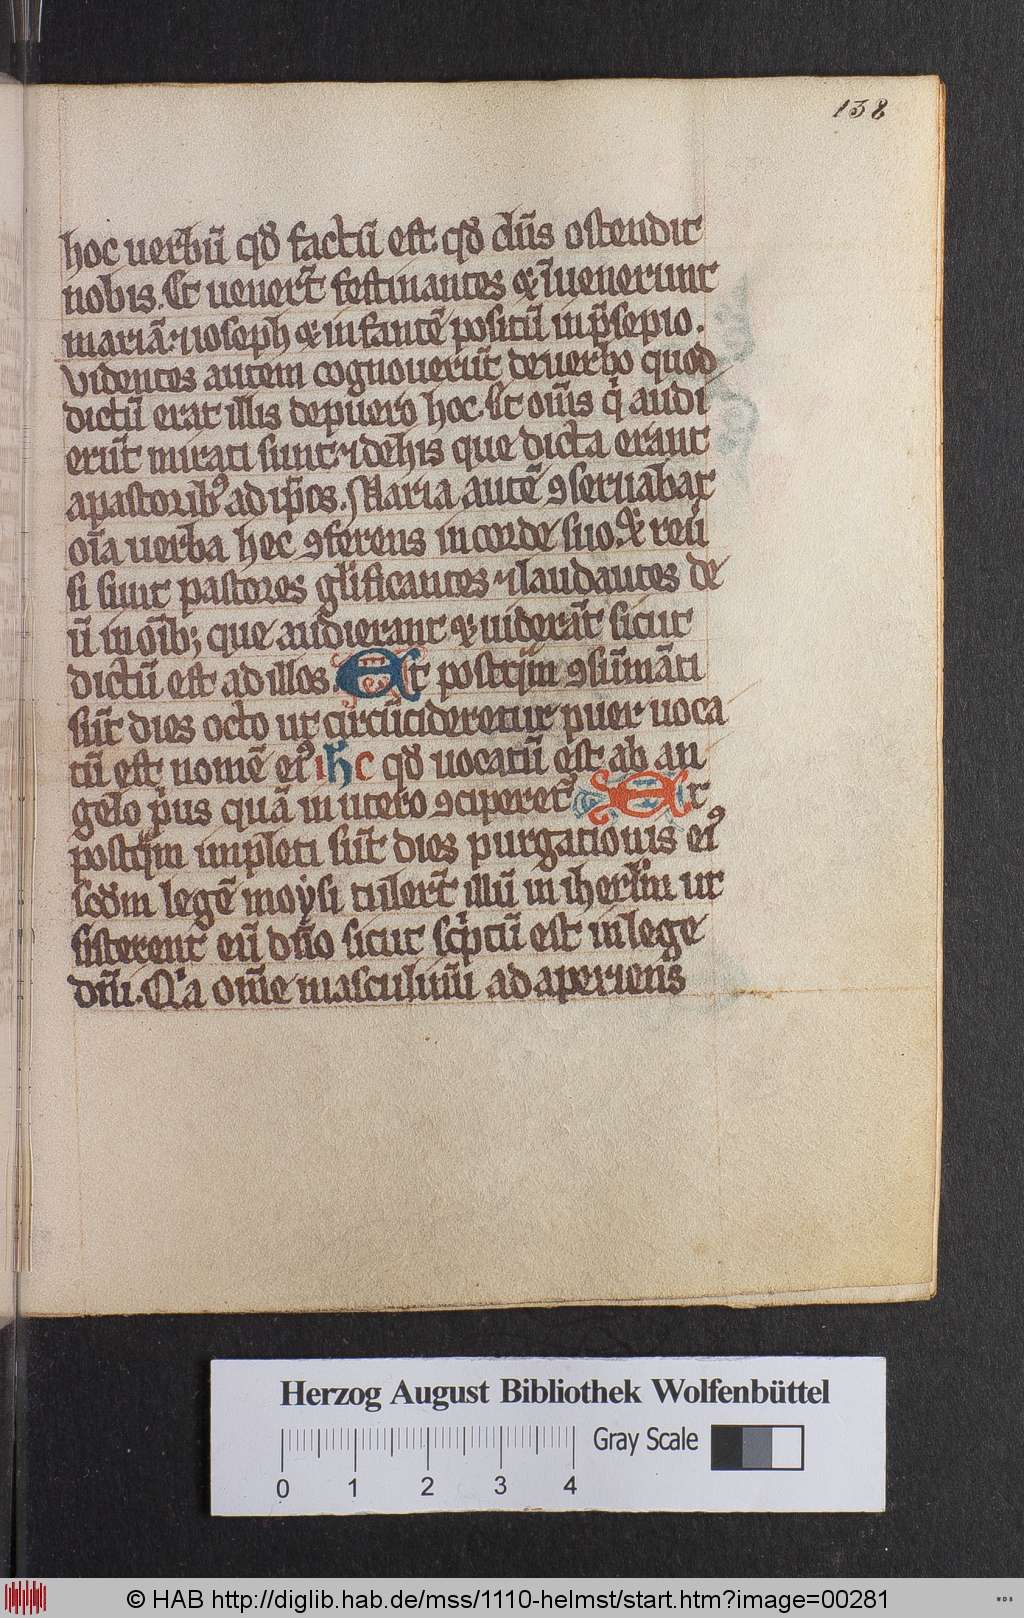 138
hoc uerbū qd̄ factū est. qd̄ dn̄s ostendit
nobis. Et uener̄t festinantes & īuenerunt
mariā. ⁊ ioseph & infantē positū in p̄sepio.
Videntes autem cognouerūt de uerbo quod
dictū erat illis de puero hoc. Et om̄s q̇ audi
erūt mirati sunt. ⁊ de his que dicta erant
a pastoribꝰ ad ip̄os. Maria autē ꝯseruabat
oīa uerba hec ꝯferens in corde suo. & reu̾
si sunt pastores glīficantes ⁊ laudantes de
ū in oīb; que audierant & uiderāt sicut
dictū est ad illos. Et postq̄m ꝯsūmāti
sūt dies octo ut circūcideretur puer uoca
tū est nomē eiꝰ ihc qd̄ uocatū est ab an
gelo p̄us quā in utero ꝯciperet᷑. Et
postq̄m impleti sūt dies purgationis eiꝰ
scd̄m legē moysi tuler̄t illū in iherl̄m ut
sisterent eū dn̄o sicut sc̄ptū est in lege
dn̄i. Qͥa om̄e masculinū adaperiens
Herzog August Bibliothek Wolfenbüttel
Gray Scale
0 1 2 3 4
© HAB http://diglib.hab.de/mss/1110-helmst/start.htm?image=00281